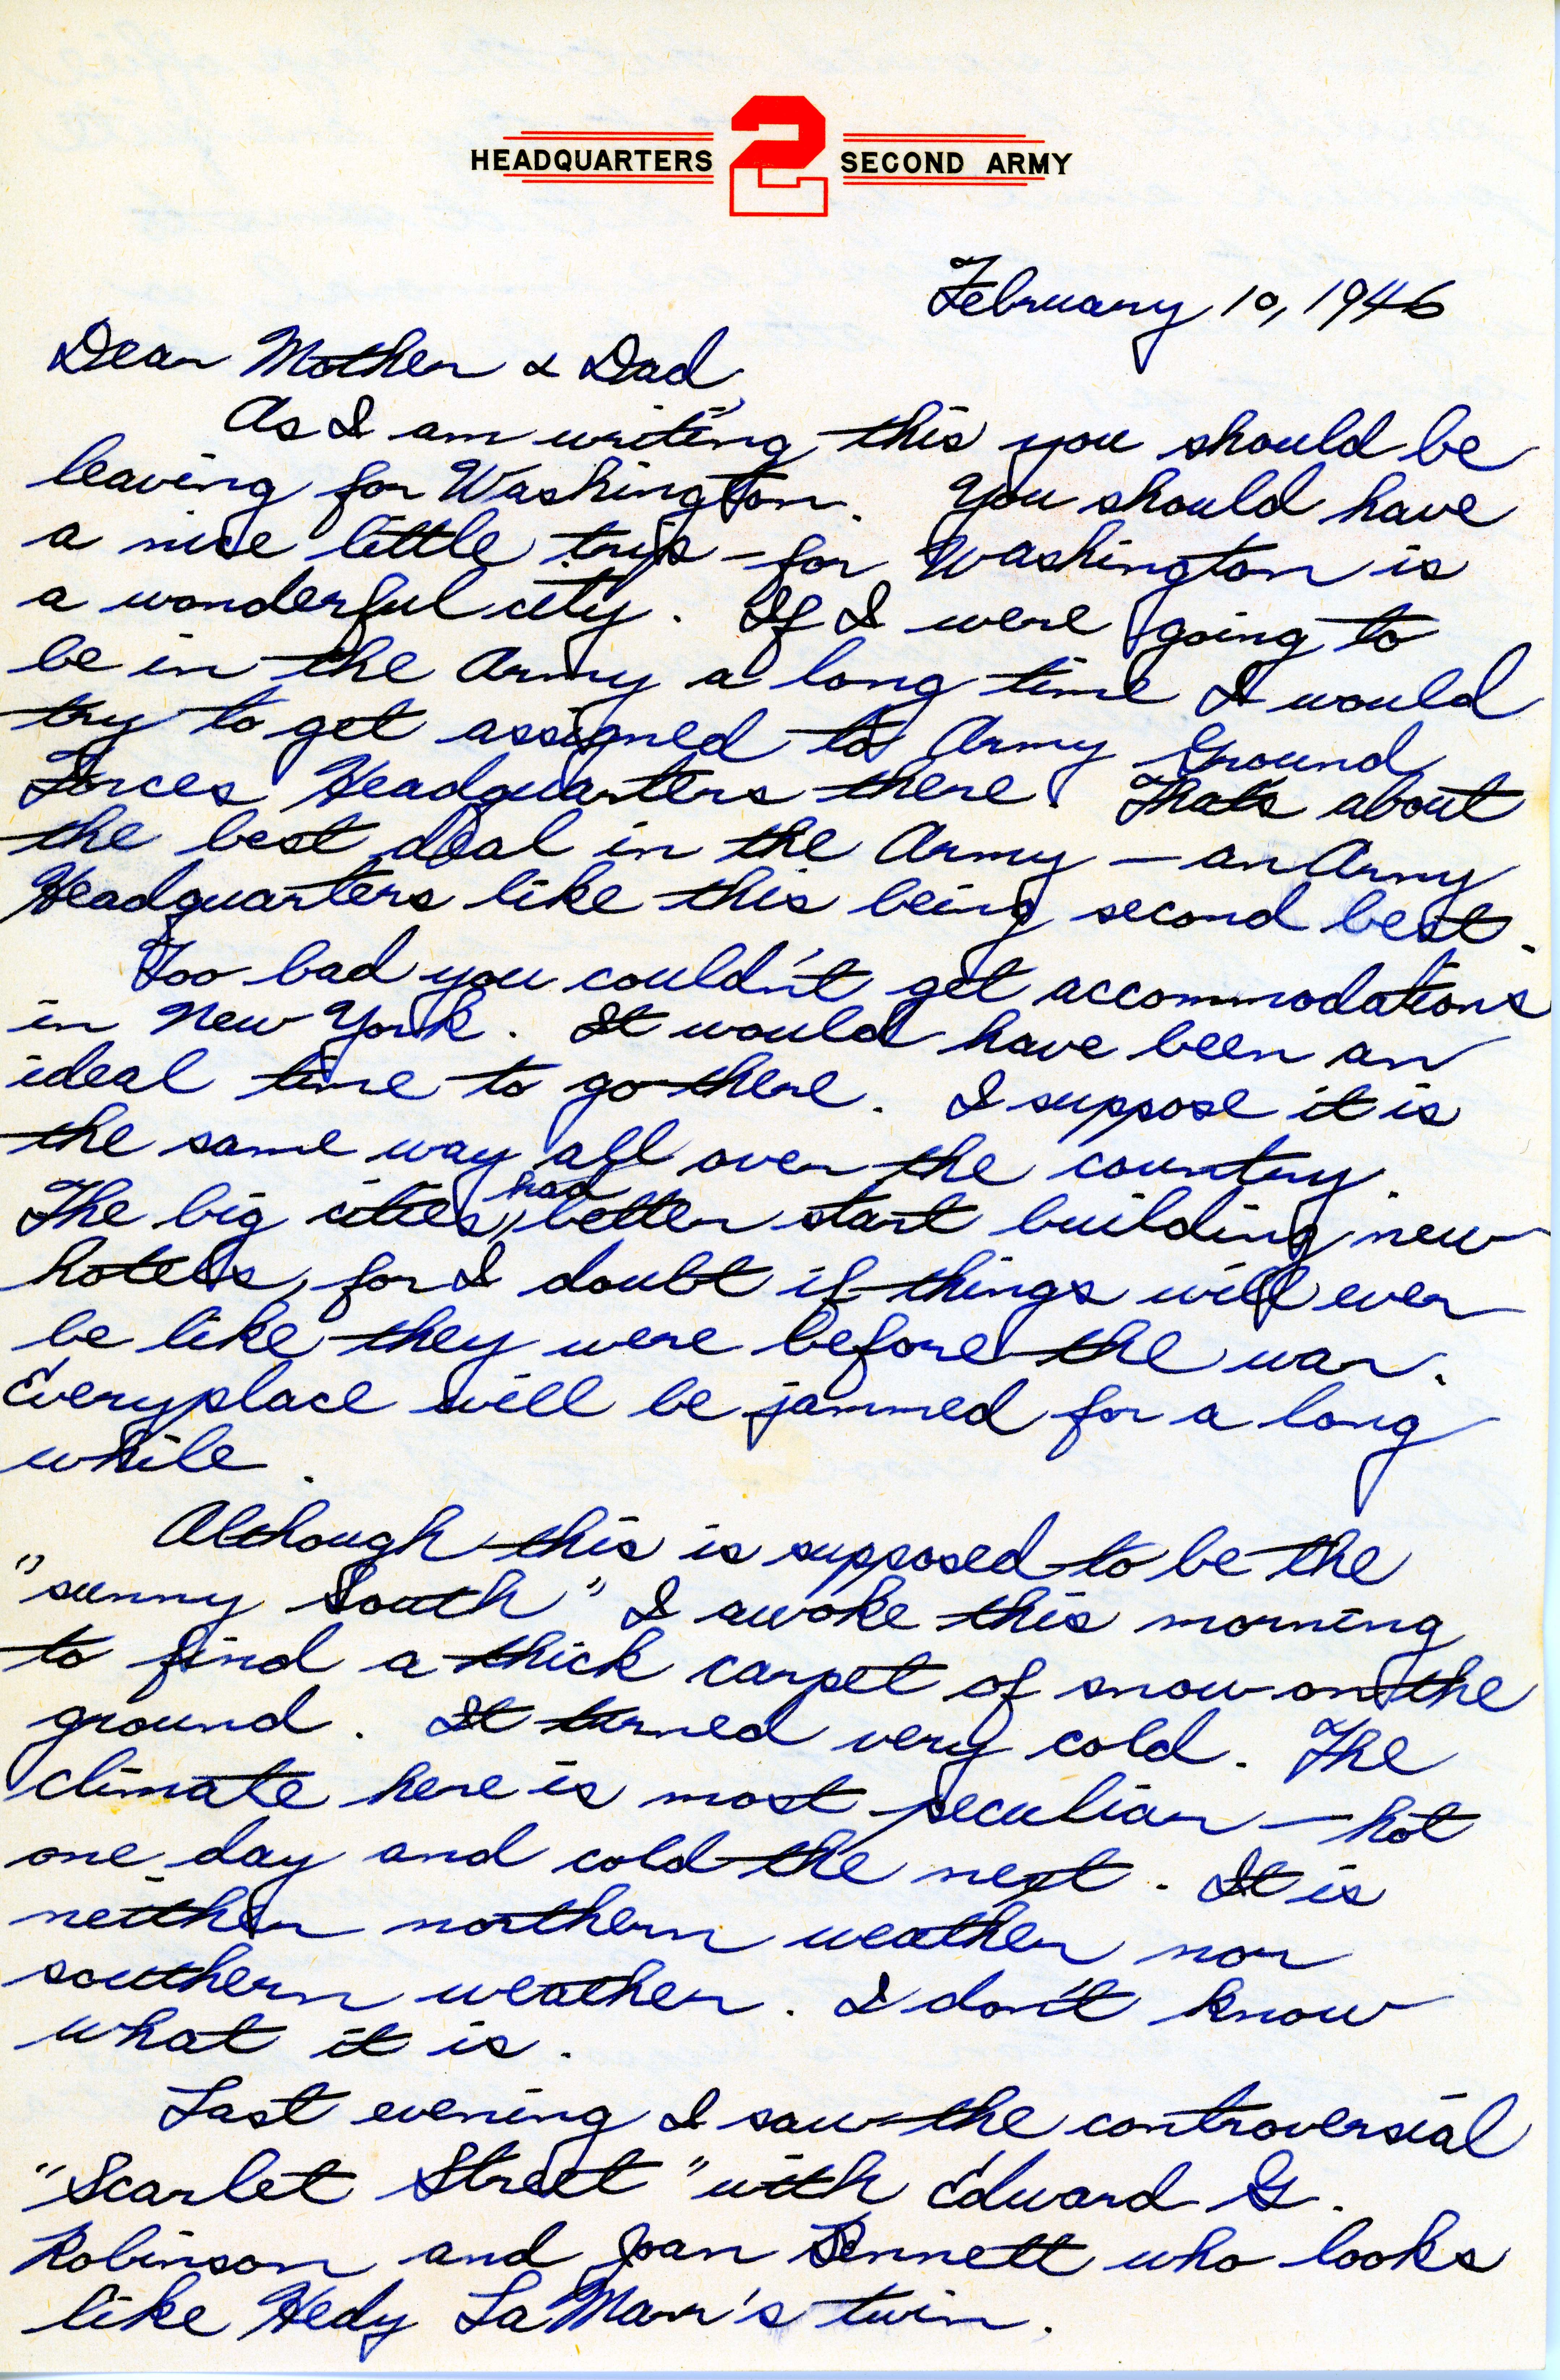 HEADQUARTERS 2 SECOND ARMY
February 10, 1946
Dear Mother & Dad,
As I am writing this you should be
leaving for Washington. You should have
a nice little trip – for Washington is
a wonderful city. If I were going to
be in the Army a long time I would
try to get assigned to Army Ground
Forces Headquarters there. That's about
the best deal in the Army – an Army
Headquarters like this being second best.
Too bad you couldn't get accommodations
in New York. It would have been an
ideal time to go there. I suppose it is
the same way all over the country.
The big cities had better start building new
hotels, for I doubt if things will ever
be like they were before the war.
Everyplace will be jammed for a long
while.
Although this is supposed to be the
"sunny South" I awoke this morning
to find a thick carpet of snow on the
ground. It turned very cold. The
climate here is most peculiar – hot
one day and cold the next. It is
neither northern weather nor
southern weather. I don't know
what it is.
Last evening I saw the controversial
"Scarlet Street" with Edward G.
Robinson and Joan Bennett who looks
like Hedy LaMarr's twin.